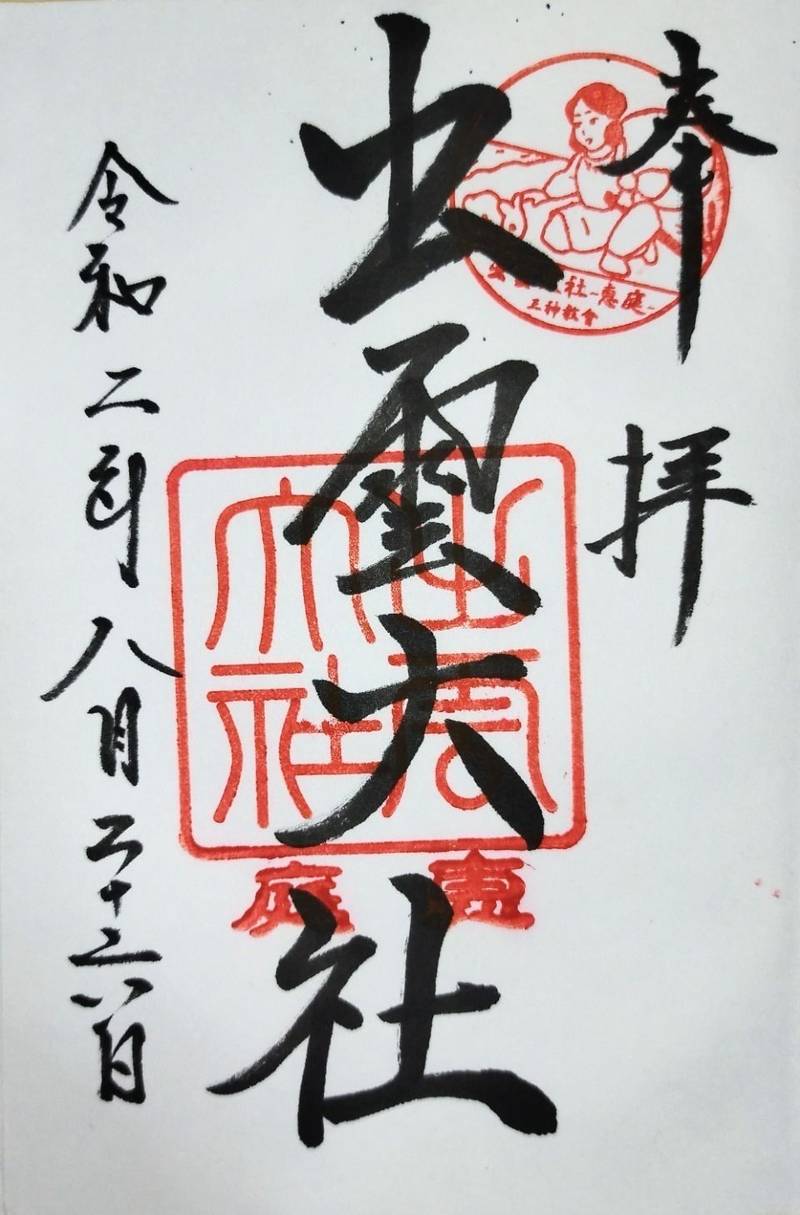 奉拝
出雲大社
令和二年八月二十六日
出雲大社-惠庭-
三神教會
出雲大社
惠庭